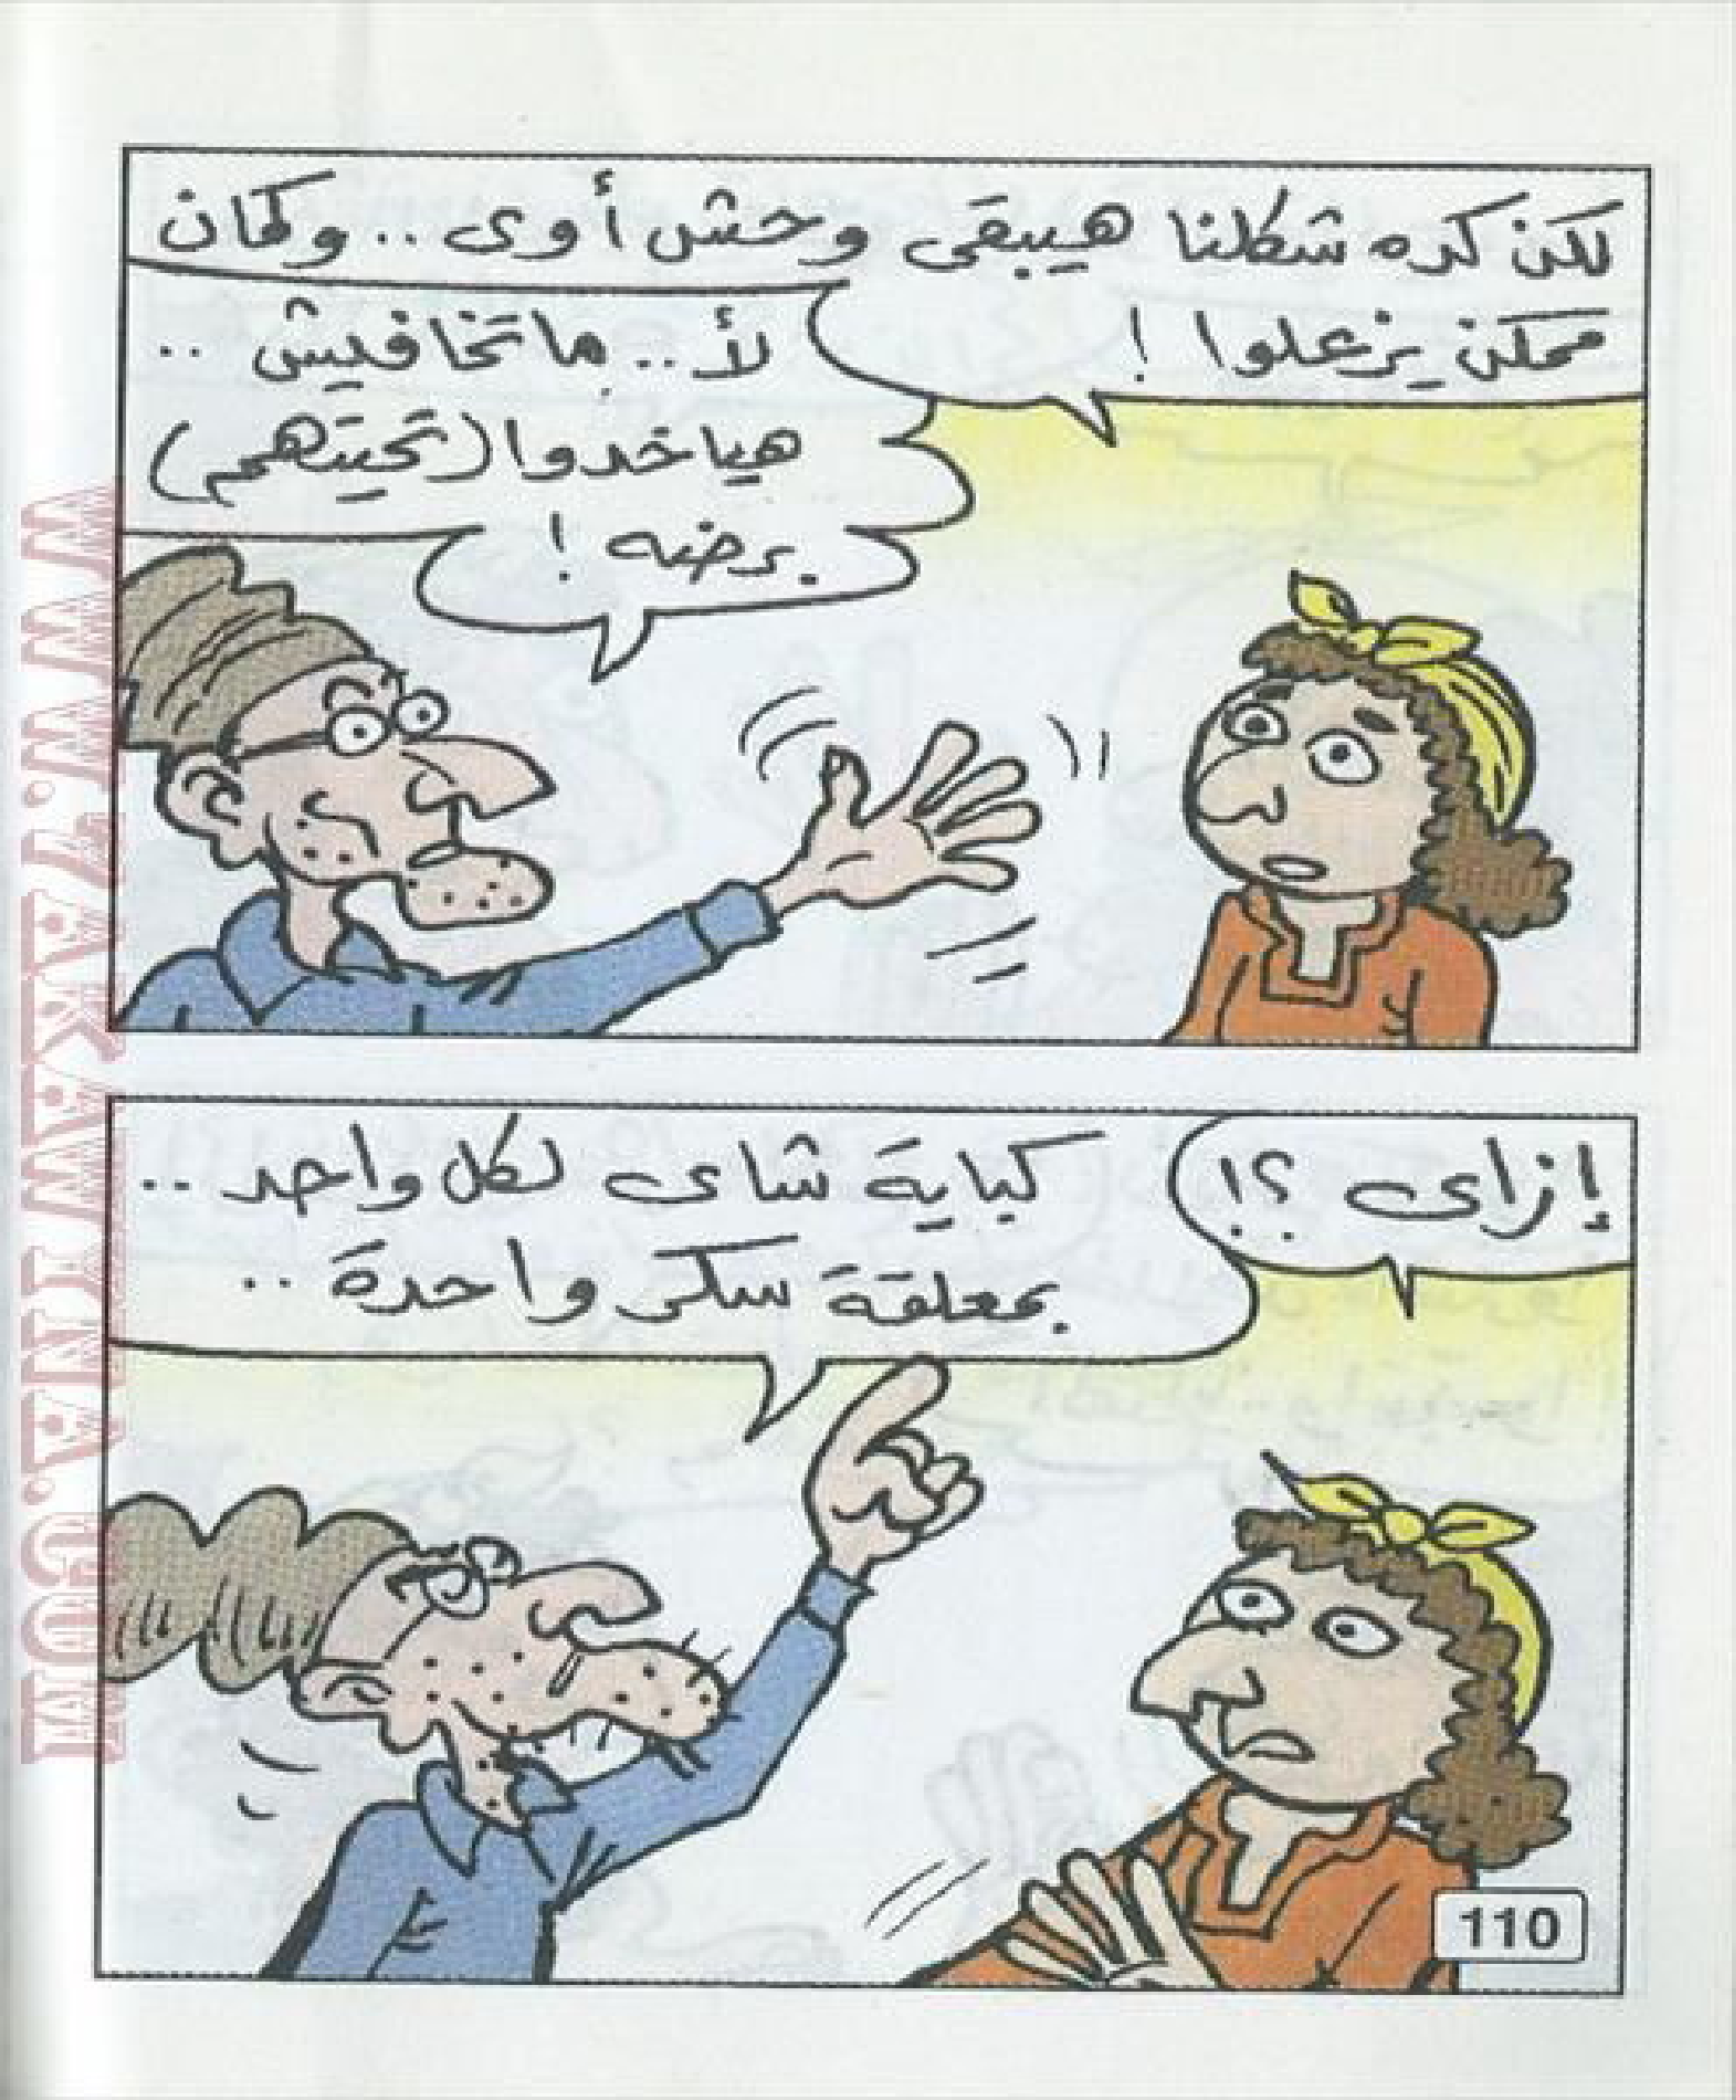 لكن كده شكلنا هيبقى وحش أوى .. وكمان
ممكن يزعلوا !
لأ .. ماتخافيش ..
هياخدوا (تحيتهم)
برضه !
إزاى ؟!
كباية شاى لكل واحد ..
بمعلقة سكر واحدة ..
110